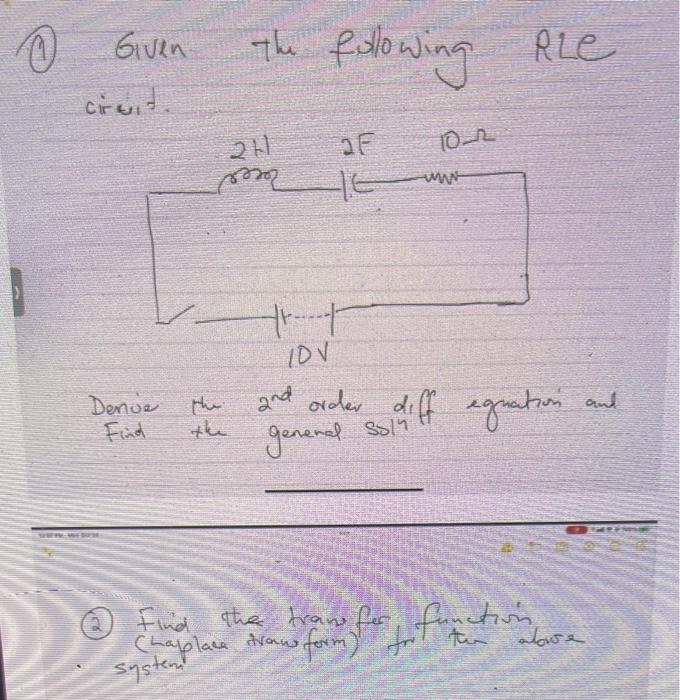 ① Given the following RLC
circuit.
2H 2F 10Ω
10V
Derive the 2nd order diff equation and
Find the general solⁿ
② Find the transfer function
(Laplace transform) for the above
system